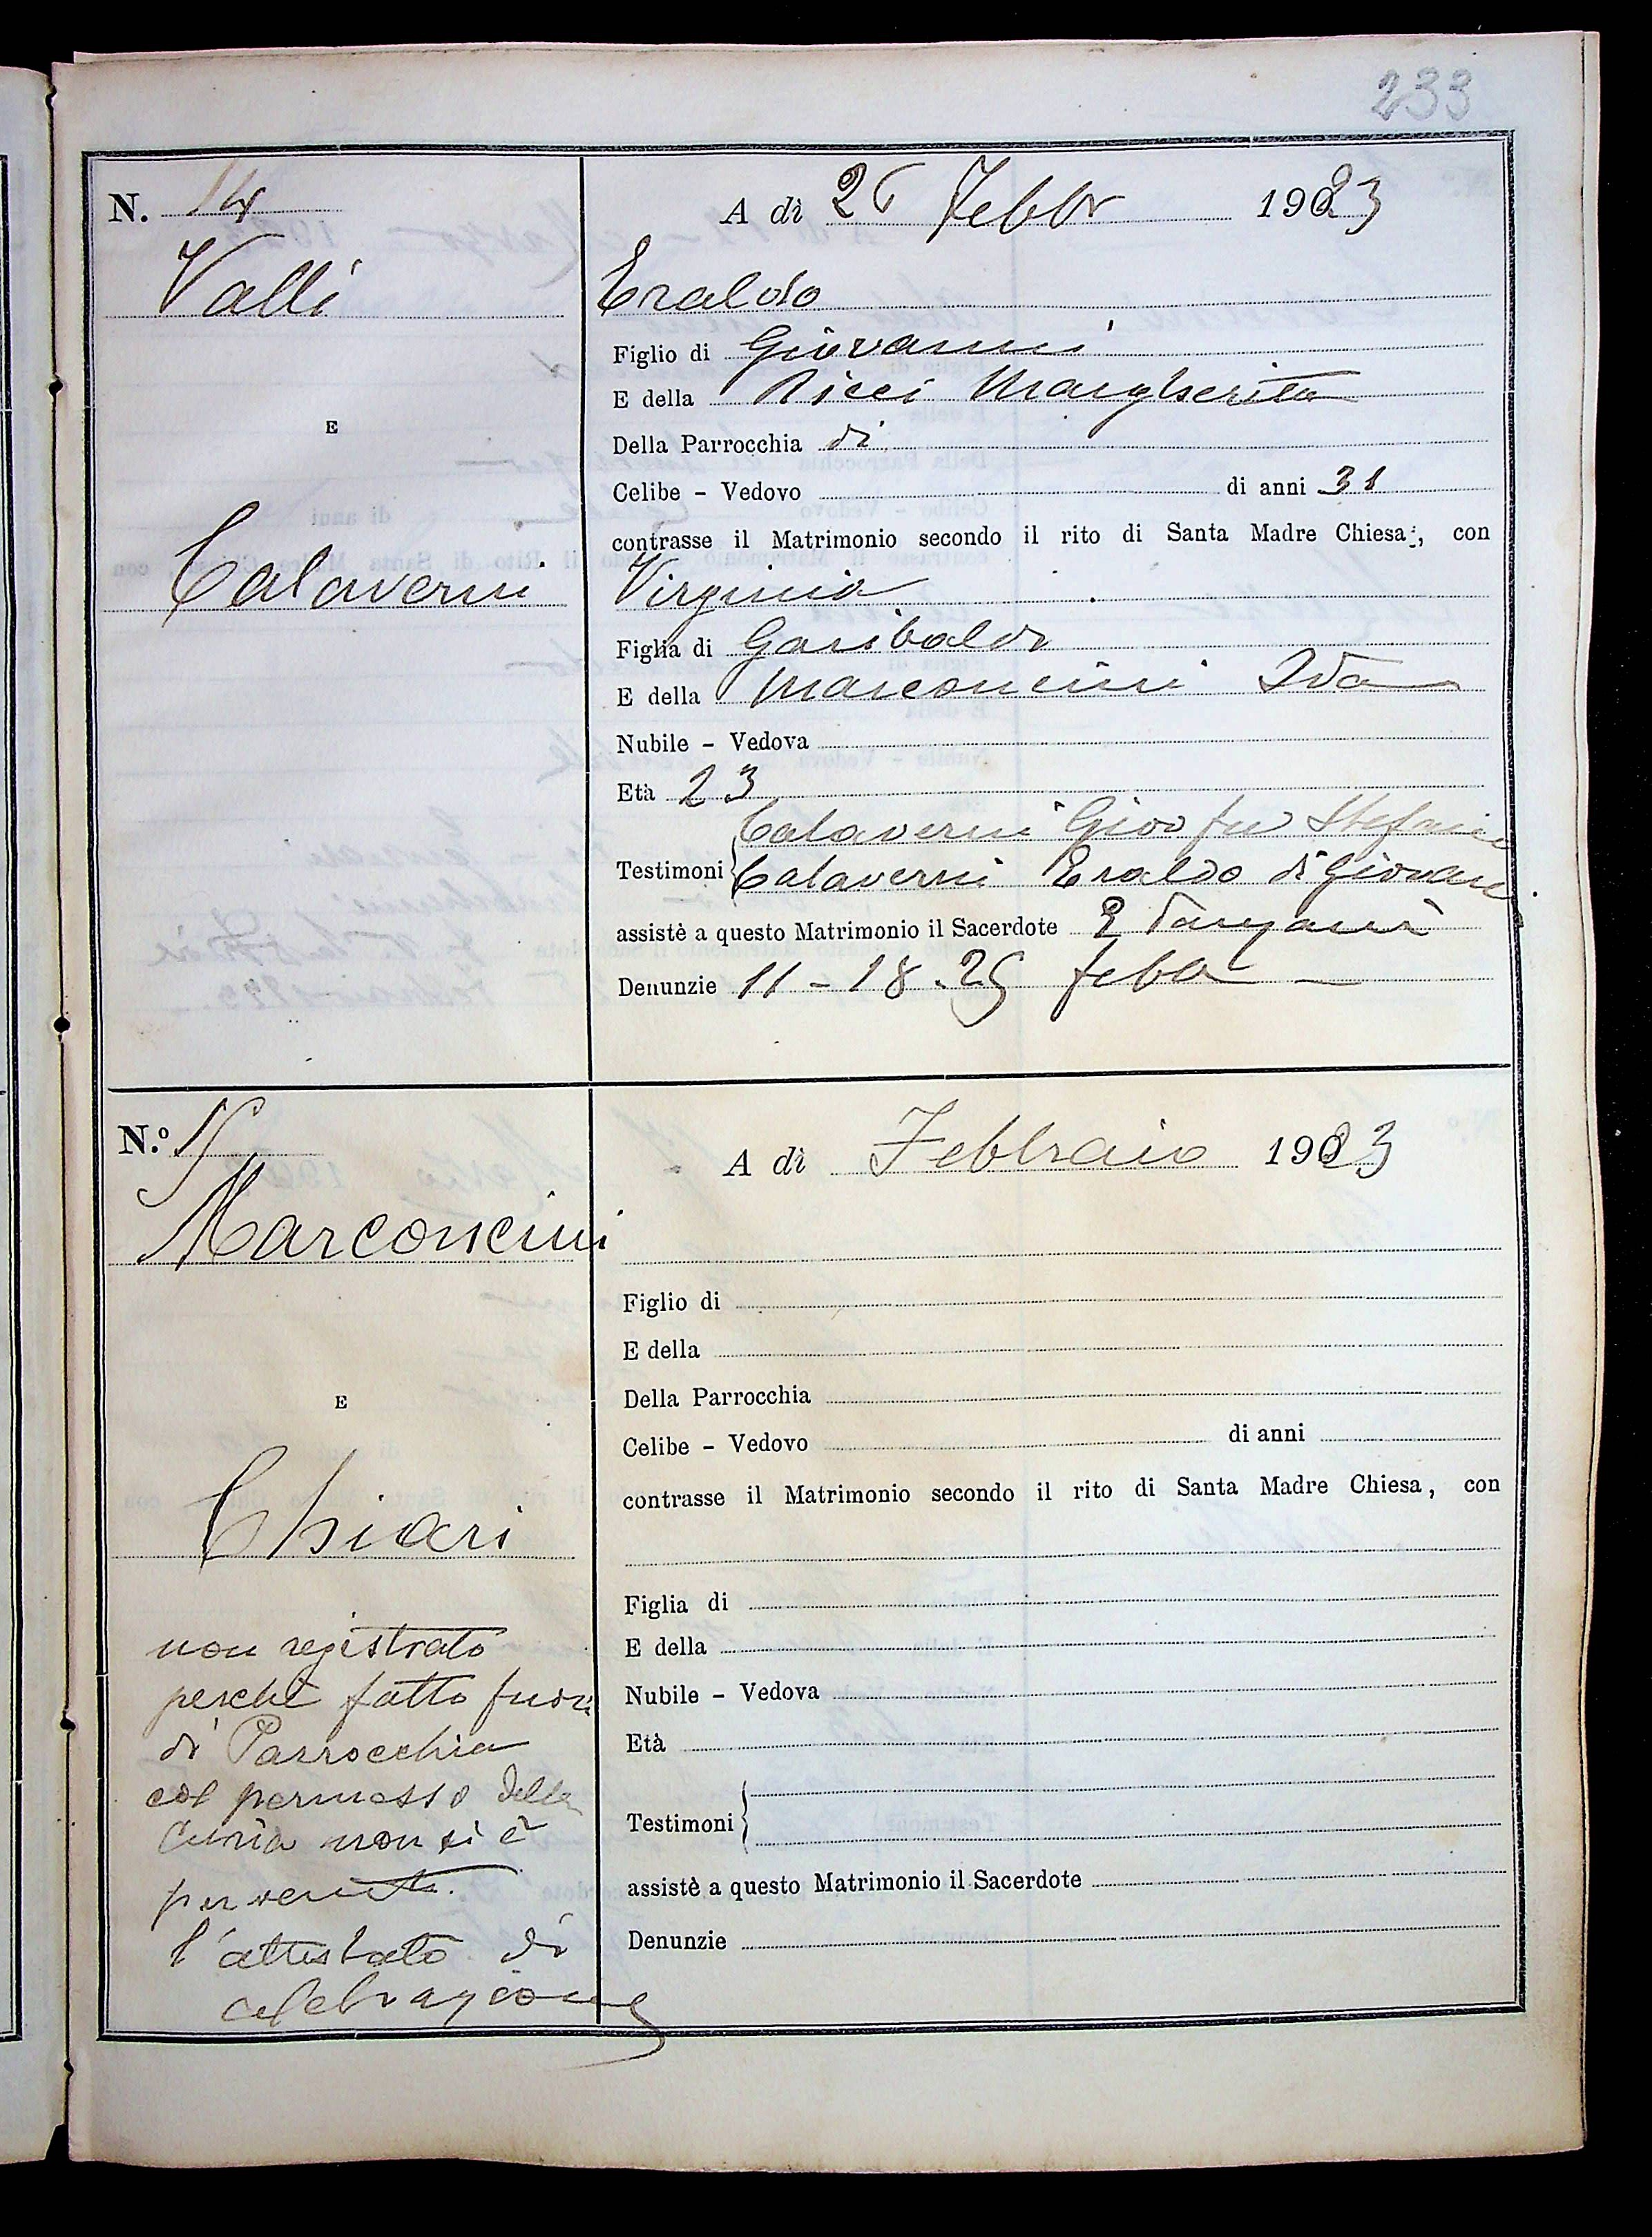 233
N. 14
A dì 26 Febbr 1923
Valli
Eraldo
Figlio di Giovanni
E della Ricci Margherita
E
Della Parrocchia di
Celibe - Vedovo di anni 31
contrasse il Matrimonio secondo il rito di Santa Madre Chiesa, con
Calaverni
Virginia
Figlia di Garibaldi
E della Marconcini Ida
Nubile - Vedova
Età 23
Testimoni
Calaverni Giov fu Stefano
Calaverni Eraldo di Giovanni
assistè a questo Matrimonio il Sacerdote
Denunzie 11 - 18 - 25 febb
N.º 15
A dì Febbraio 1923
Marconcini
Figlio di
E della
E
Della Parrocchia
Celibe - Vedovo di anni
contrasse il Matrimonio secondo il rito di Santa Madre Chiesa, con
Chiari
Figlia di
E della
Nubile - Vedova
Età
Testimoni
assistè a questo Matrimonio il Sacerdote
Denunzie
non registrato
perchè fatto fuori
di Parrocchia
col permesso della
Curia non si è
pervenuto
l'attestato di
celebrazione